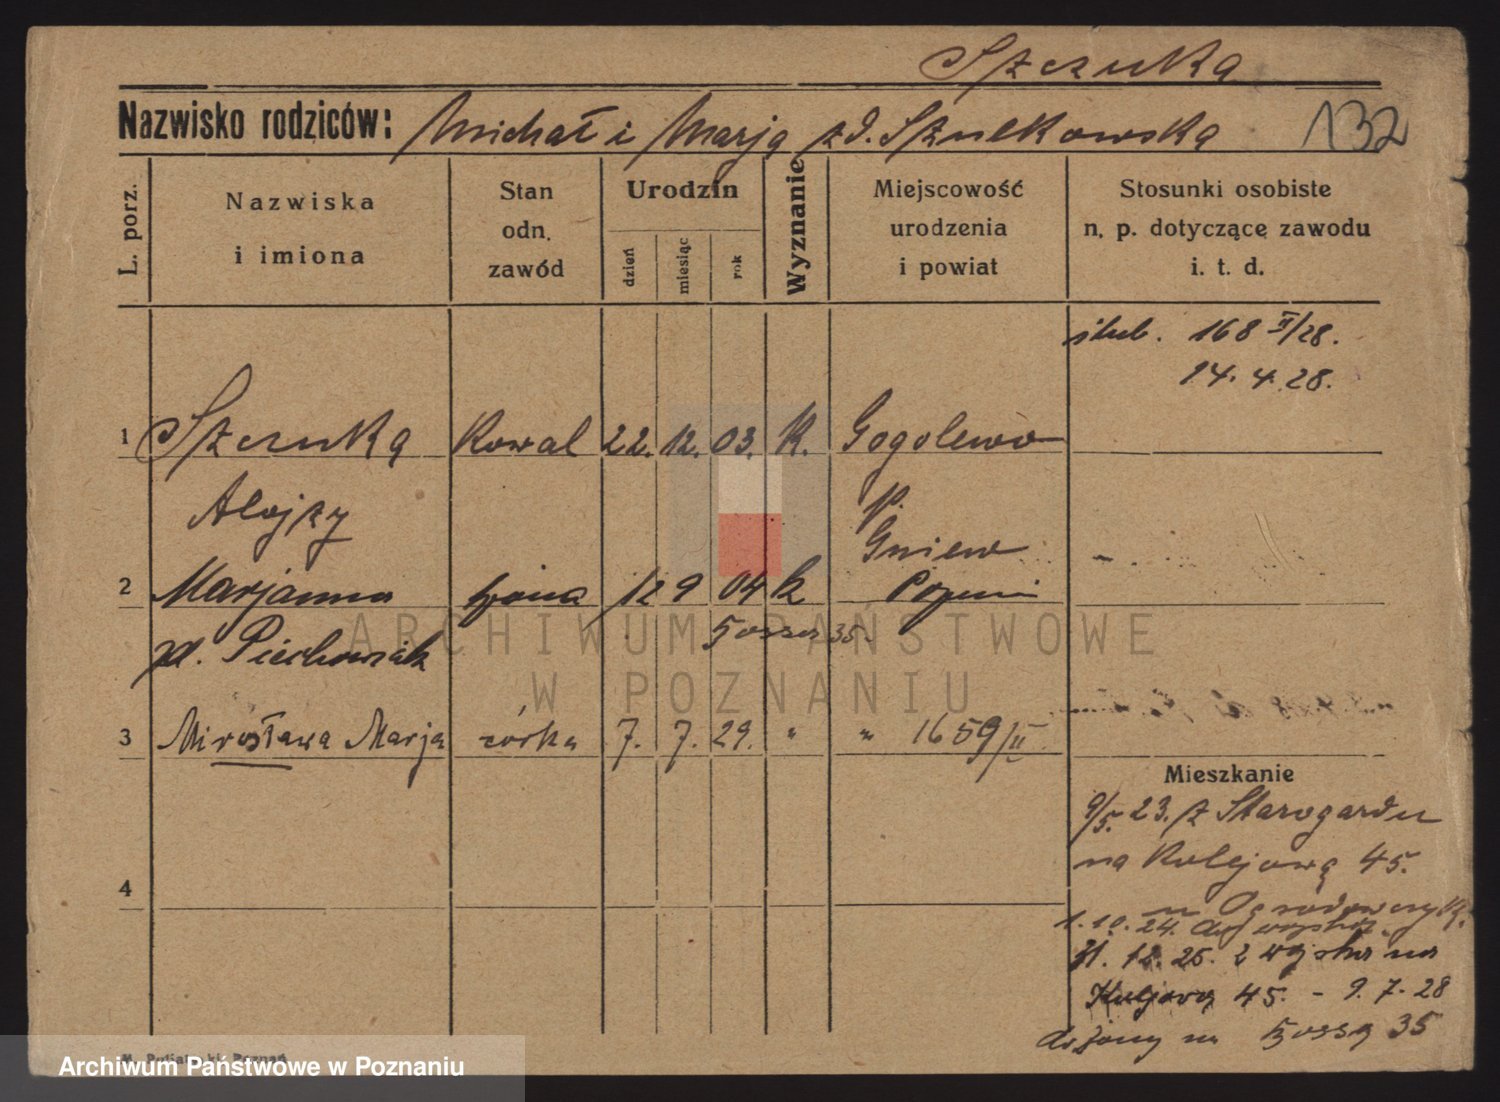 Szczuka
Nazwisko rodziców: Michał i Marja zd. Szulkowska 132
L. porz.
Nazwiska i imiona
Stan odn. zawód
Urodzin
dzień
miesiąc
rok
Wyznanie
Miejscowość urodzenia i powiat
Stosunki osobiste n. p. dotyczące zawodu i. t. d.
ślub. 168 II/28.
14. 4. 28.
1 Szczuka Kowal 22. 12. 03. K. Gogolewo
Alojzy p. Gniew
2 Marjanna żona 12 9 04 k Poznań
zd. Piechowiak 35
3 Mirosława Marja córka 7. 7. 29. " " 1659/II
Mieszkanie
9/5. 23. z Starogardu
na Kolejową 45.
4
1. 10. 24. do wojska
31. 12. 25. z wojska na
Kolejową 45. - 9. 7. 28
do żony na 35
ARCHIWUM PAŃSTWOWE
W POZNANIU
Archiwum Państwowe w Poznaniu